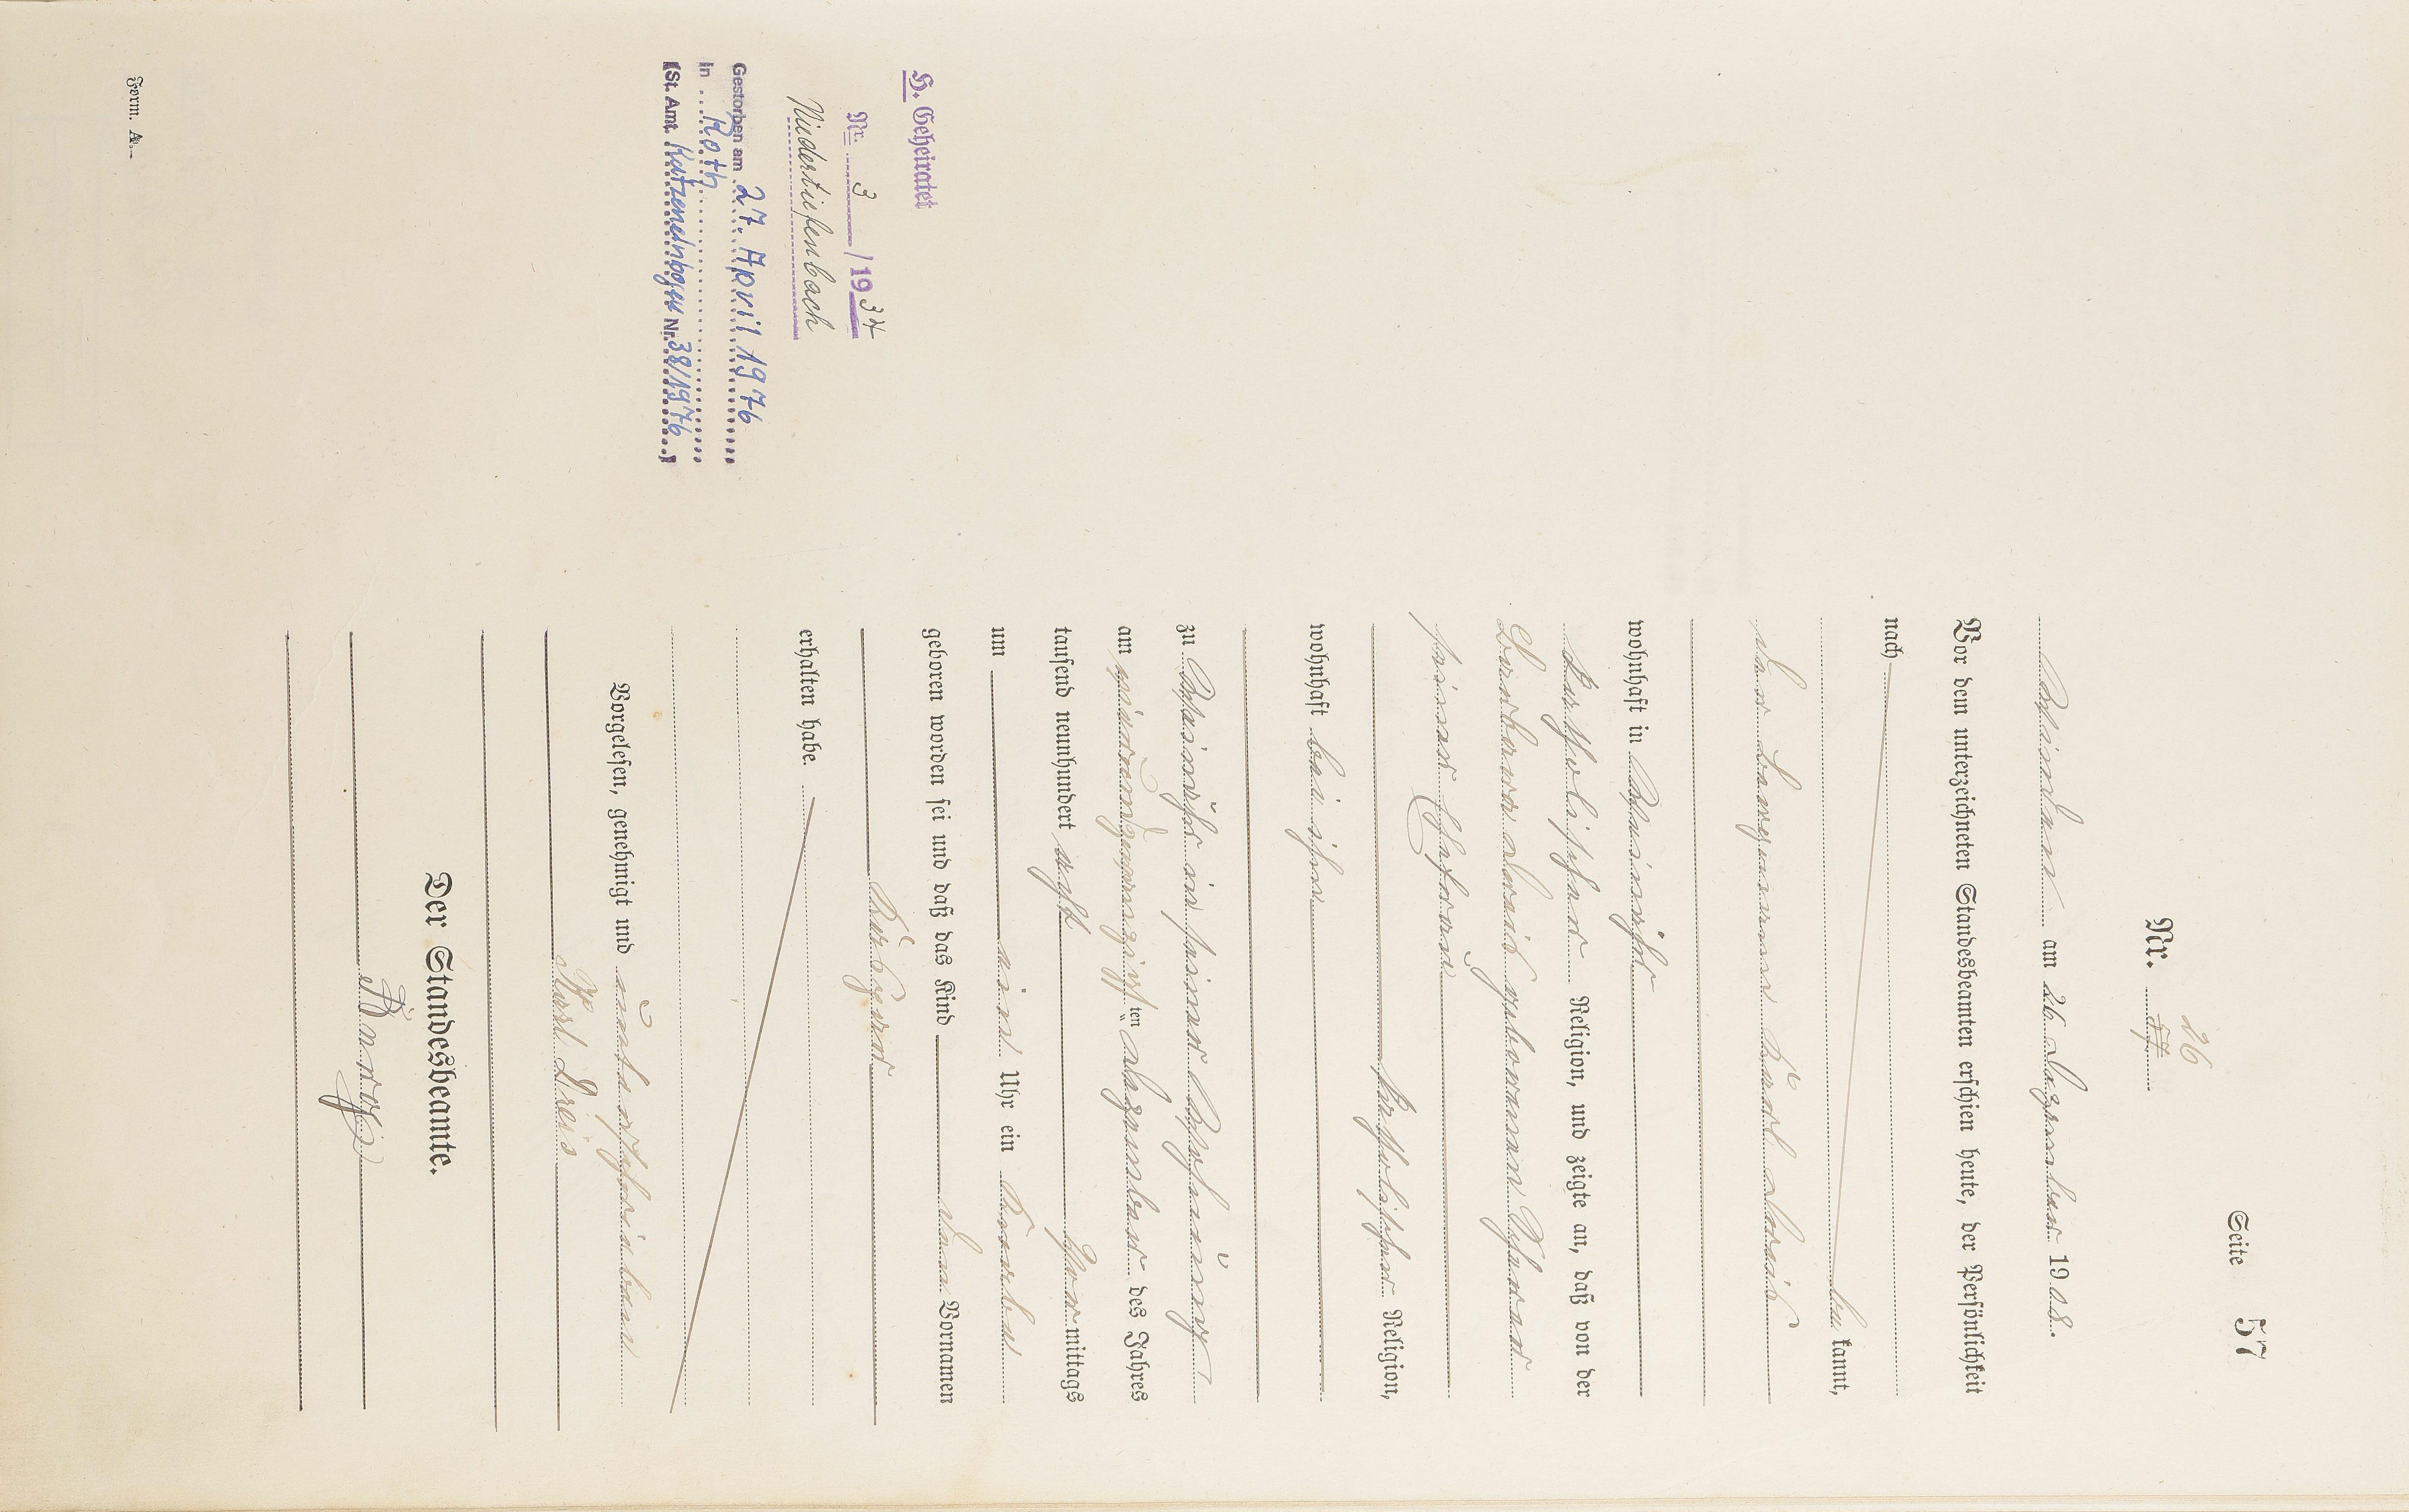 Seite 57
Nr. 26
am 26 Dezember 1908.
Vor dem unterzeichneten Standesbeamten erschien heute, der Persönlichkeit
nach
be kannt,
der Bergmann Karl Dreis
wohnhaft in
katholischer Religion, und zeigte an, daß von der
Barbara Dreis geborenen Scherer
seiner Ehefrau
katholischer Religion,
wohnhaft bei ihm
zu in seiner Wohnung
am vierundzwanzigsten Dezember des Jahres
tausend neunhundert acht Vormittags
um ein Uhr ein Knabe
geboren worden sei und daß das Kind den Vornamen
erhalten habe.
Vorgelesen, genehmigt und unterschrieben
Karl Dreis
Der Standesbeamte.
H. Geheiratet
Nr. 3 /1934
Niedertiefenbach
Gestorben am 27. April 1976
in Roth
(St. Amt. Katzenelnbogen Nr. 38/1976)
Form. A.